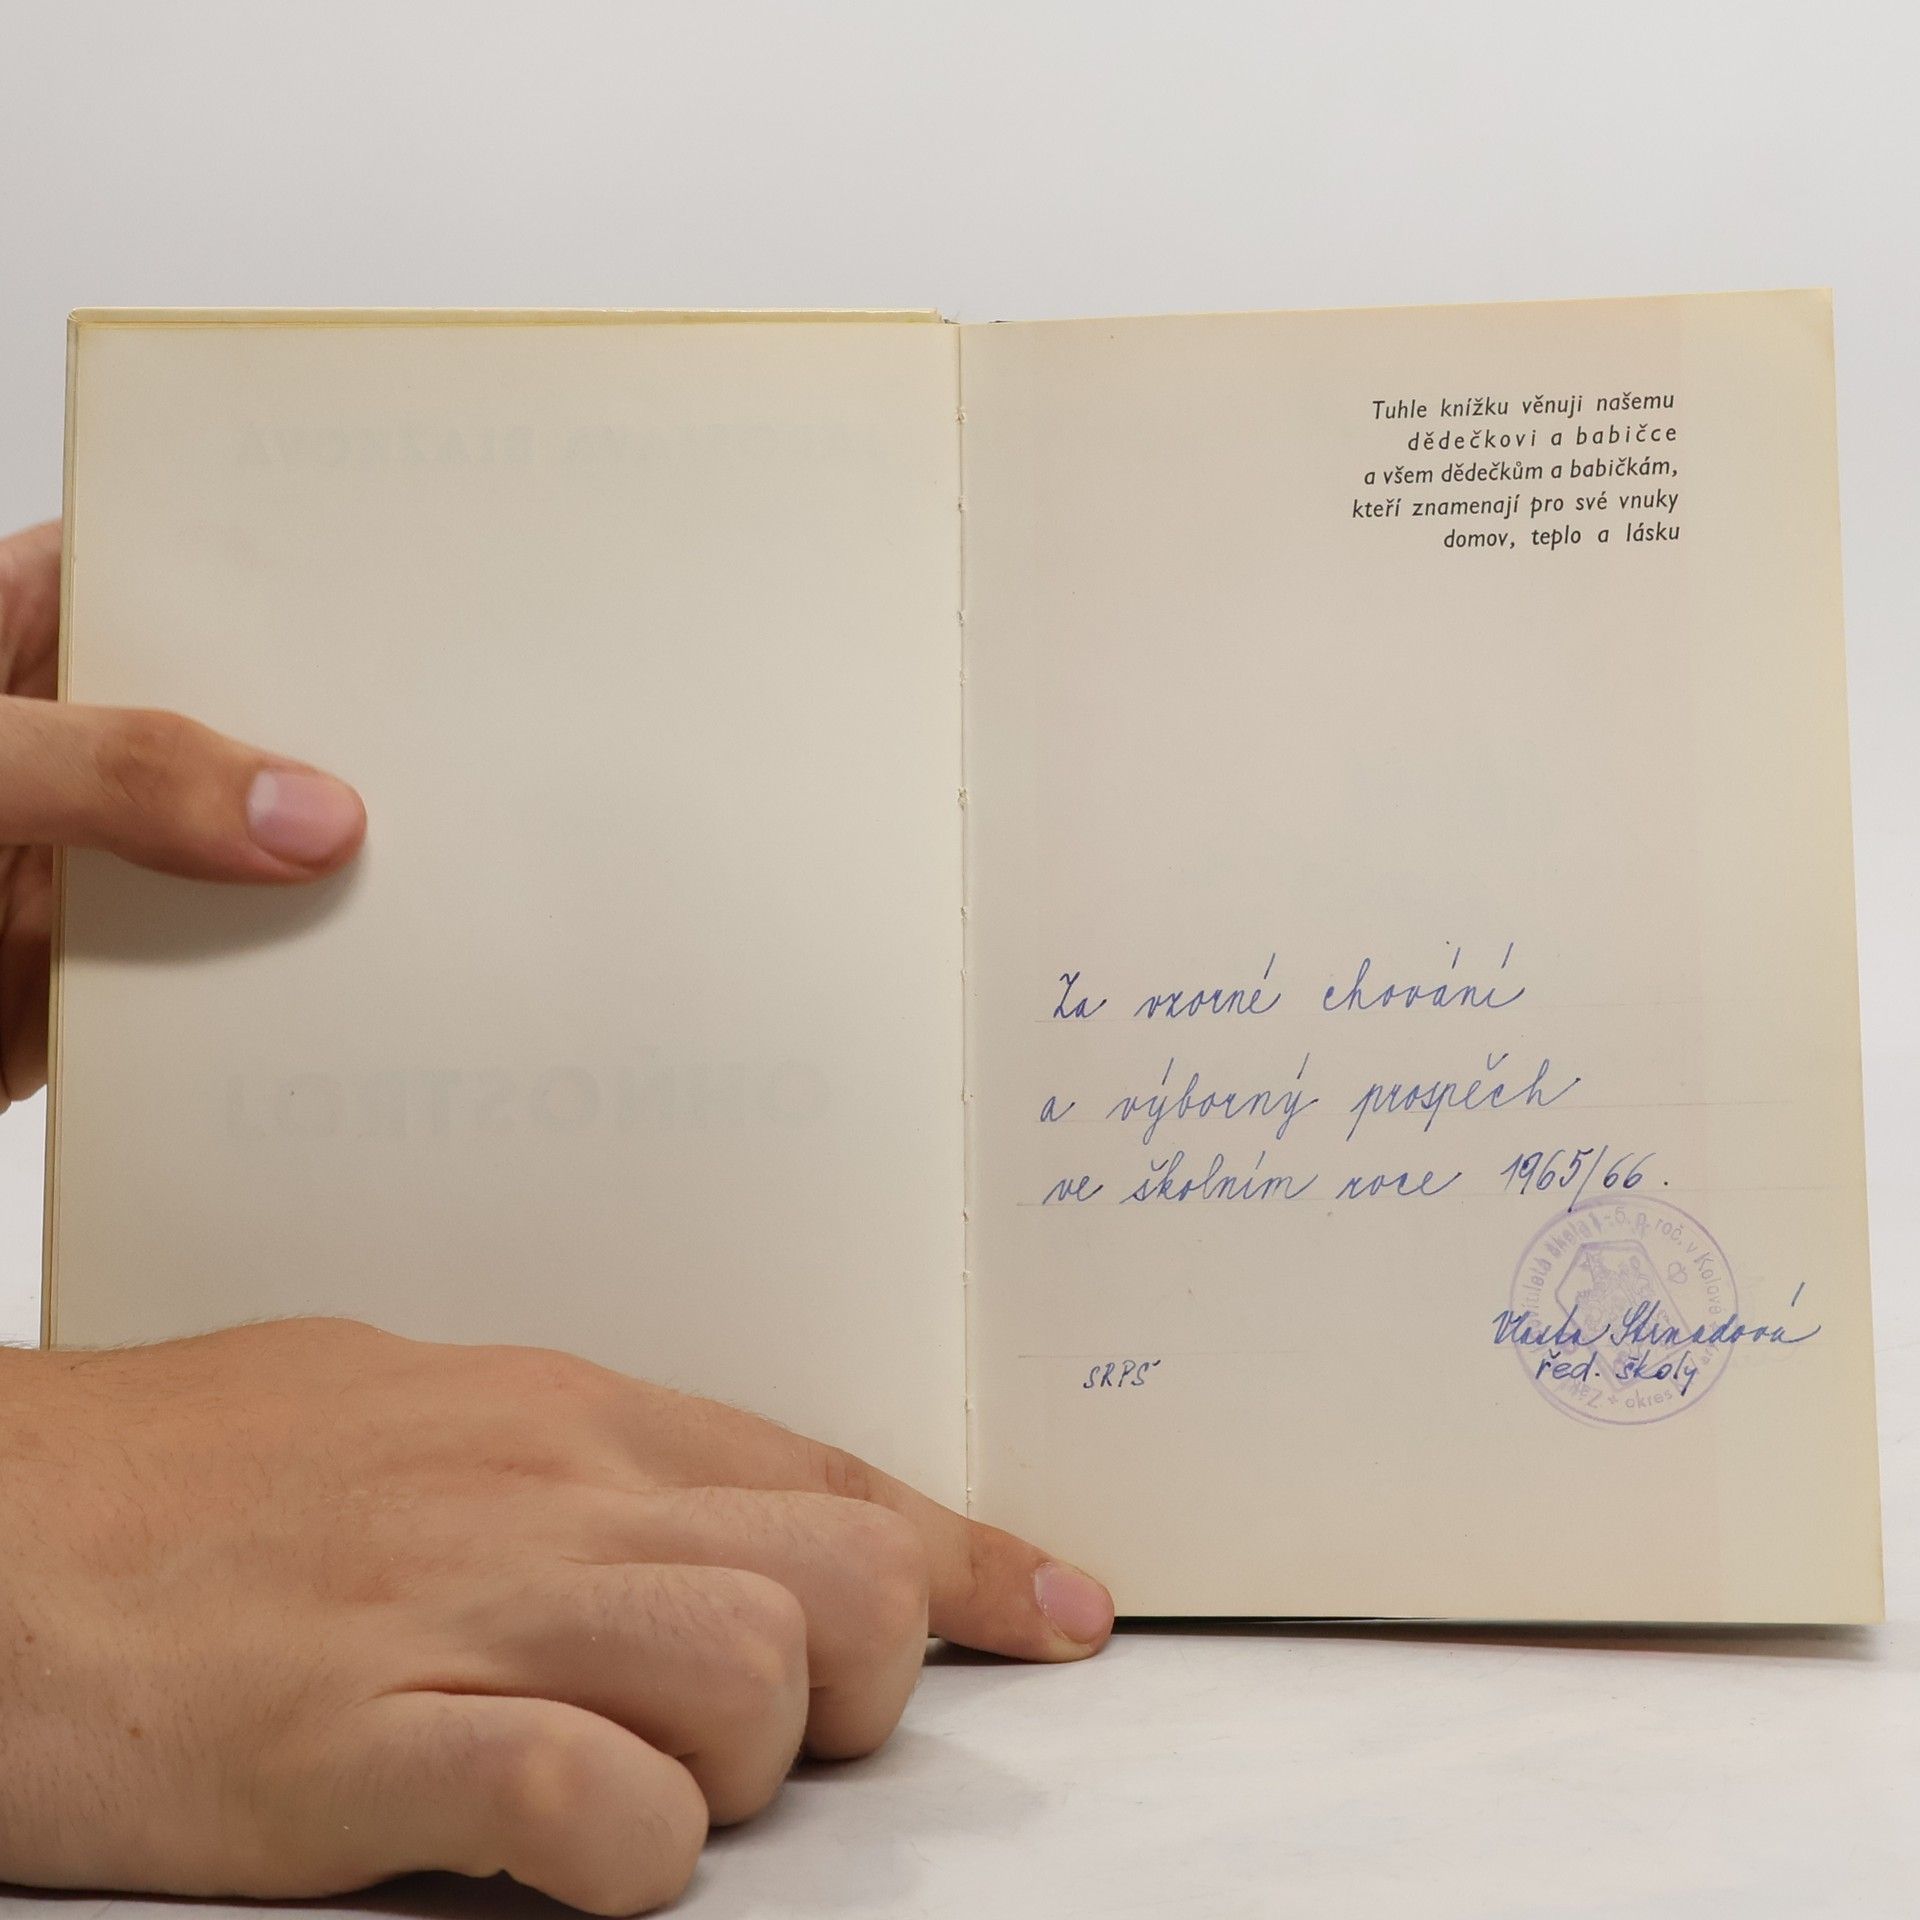 Tuhle knížku věnuji našemu
dědečkovi a babičce
a všem dědečkům a babičkám,
kteří znamenají pro své vnuky
domov, teplo a lásku
Za vzorné chování
a výborný prospěch
ve školním roce 1965/66.
Vlasta Strnadová
řed. školy
SRPŠ
škola 1.-5. p. roč. v
okres